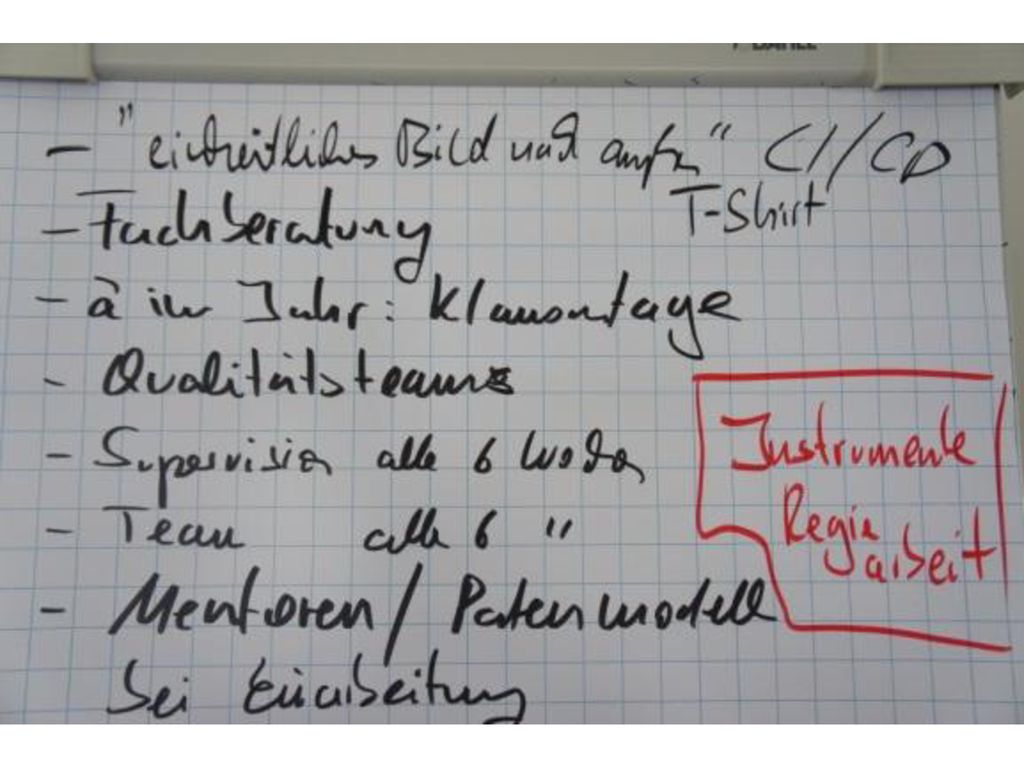 - "einheitliches Bild nach außen" CI/CD
T-Shirt
- Fachberatung
- à im Jahr: Klausurtage
- Qualitätsteams
- Supervision alle 6 Wochen
- Team alle 6 "
- Mentoren/Patenmodell
bei Einarbeitung
Instrumente
Regie
arbeit